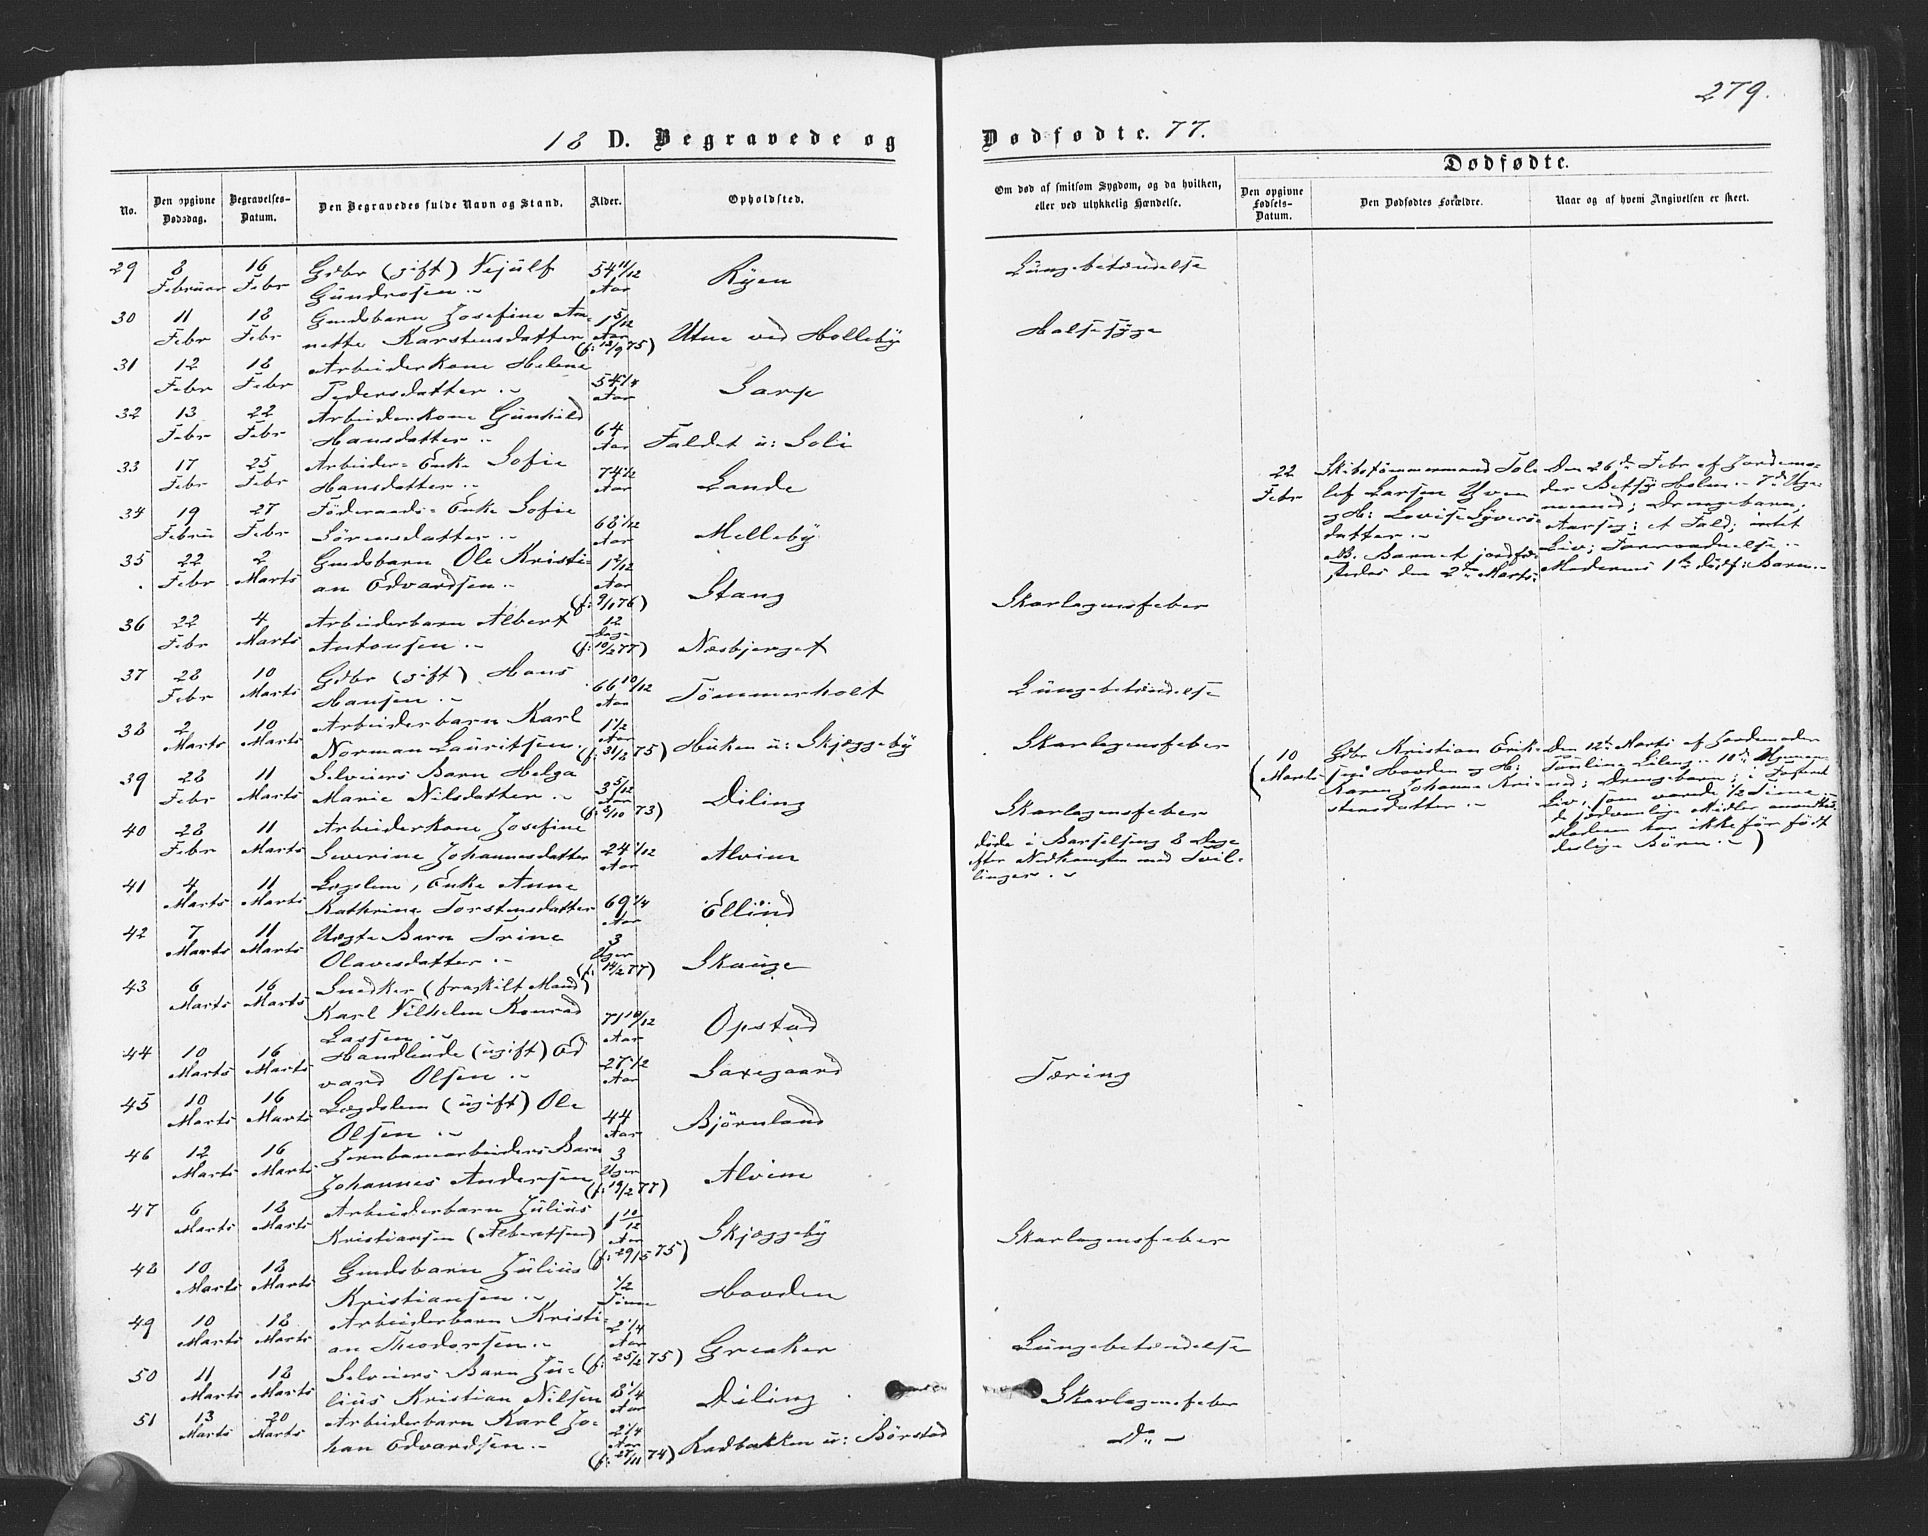 279.
18 D. Begravede og Dødfødte. 77.
Dødfødte.
No.
Den opgivne Dødsdag.
Begravelses-Datum.
Den Begravedes fulde Navn og Stand.
Alder.
Opholdsted.
Om død af smitsom Sygdom, og da hvilken, eller ved ulykkelig Hændelse.
Den opgivne Fødsels-Datum.
Den Dødfødtes Forældre.
Naar og af hvem Angivelsen er skeet.
29 8 Februar 16 Febr Gdbr (gift) Vejulf 54 11/12 Aar Ryen Lungebetændelse
Gundrosen
30 11 Febr 18 Febr Gmdsbarn Josefine An- 1 5/12 Aar Utne ved Holleby Halsesyge
nette Karstensdatter (f: 12/9 75)
31 12 Febr 18 Febr Arbeiderkone Helene 54 1/4 Aar Sarp
Pedersdatter
32 13 Febr 22 Febr Arbeiderkone Gunhild 64 Aar Faldet u: Soli
Hansdatter
33 17 Febr 25 Febr Arbeider-Enke Sofie 74 1/2 Aar Sande
Hansdatter
34 19 Februa 27 Febr Föderaads-Enke Sofie 68 1/12 Aar Melleby
Sörensdatter
35 22 Febr 2 Marts Gmdsbarn Ole Kristi- 1 2/12 Aar Stang Skarlagensfeber
an Edvardsen (f: 9/1 76)
36 22 Febr 4 Marts Arbeiderbarn Albert 12 Dage Næsbjerget
Antonsen (f: 10/2 77)
37 28 Febr 10 Marts Gdbr (gift) Hans 66 10/12 Aar Tømmerholt Lungebetændelse
Hansen
38 2 Marts 10 Marts Arbeiderbarn Karl 1 1/2 Aar Huken u: Skjæggeby Skarlagensfeber
Norman Lauritsen (f: 31/8 75)
39 28 Febr 11 Marts Selveiers Barn Helga 3 5/12 Aar Diling Skarlagensfeber
Marie Nilsdatter (f: 2/10 73)
40 28 Febr 11 Marts Arbeiderkone Josefine 24 1/12 Aar Alvim døde i Barselseng 8 Dage
Severine Johannesdatter efter Nedkomsten med Tvil-
linger
41 4 Marts 11 Marts Lægdslem, Enke Anne 69 1/4 Aar Ellind
Kathrine Torstensdatter
42 7 Marts 11 Marts Uægte Barn Trine 3 Uger Skauge
Olavesdatter (f: 14/2 77)
43 6 Marts 16 Marts Snedker (fraskilt Mand) 71 10/12 Aar Opstad
Karl Vilhelm Konrad
Lassen
44 10 Marts 16 Marts Handlende (ugift) Ed 27 1/2 Aar Saxegaard Tæring
vard Olsen
45 10 Marts 16 Marts Lægdslem (ugift) Ole 44 Aar Bjørnland
Olsen
46 12 Marts 16 Marts Jernbanearbeiders Barn 3 Uger Alvim
Johannes Andersen (f: 19/2 77)
47 6 Marts 18 Marts Arbeiderbarn Julius 1 10/12 Aar Skjæggeby Skarlagensfeber
Kristiansen (Albertsen) (f: 29/5 75)
48 10 Marts 18 Marts Gmdsbarn Julius 1/2 Time Hovden
Kristiansen
49 10 Marts 18 Marts Arbeiderbarn Kristi- 2 1/4 Aar Greaker Lungebetændelse
an Theodorsen (f: 25/2 75)
50 11 Marts 18 Marts Selveiers Barn Ju- 8 1/4 Aar Diling Skarlagensfeber
lius Kristian Nilsen
51 13 Marts 20 Marts Arbeiderbarn Karl Jo- 2 1/4 Aar Rødbakken u: Børstad Do
han Edvardsen (f: 27/11 74)
22 Febr
Skibstømmermand Tol-
lef Larsen Yven
og H: Lovise Syvers-
datter
NB. Barnet jordfæ-
stedes den 2den Marts:
Den 26de Febr af Jordemo-
der Betsy Holm
mand; Drengebarn;
Aarsag: et Fald; intet
Liv; Forraadnelse
Moderens 1ste dødf: Barn
(10 Marts
Gdbr Kristian Erik-
sen Hovden og H:
Karen Johanne Kri-
stensdatter
Den 12te Marts af Jordemoder
Pauline Lileng
Drengebarn;
Liv, som varede 1/2 Time
de sedvanlige Midler anvendtes
Modern har ikke før født
deslige Børn)